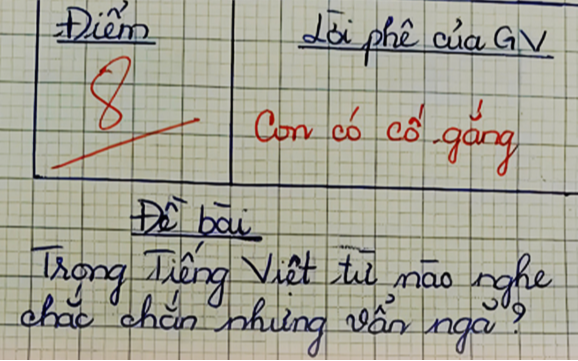 Điểm
Lời phê của GV
8
Con có cố gắng
Đề bài
Trong Tiếng Việt từ nào nghe
chắc chắn nhưng vẫn ngã?